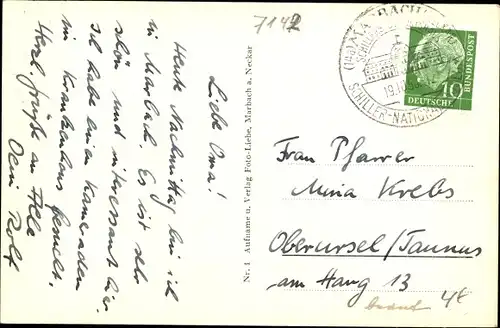 7142
Liebe Oma!
Heute Nachmittag bin ich
in Marbach. Es ist sehr
schön und interessant hier.
Ich habe einen Kameraden
im Krankenhaus besucht.
Herzl. Grüße an Alle
Dein Rolf
Nr. 1 Aufname u. Verlag Foto-Liebe, Marbach a. Neckar
MARBACH
SCHILLER-NATIONAL
19.10.
10
DEUTSCHE
BUNDESPOST
Frau Pfarrer
Mina Krebs
Oberursel/Taunus
am Hang 13